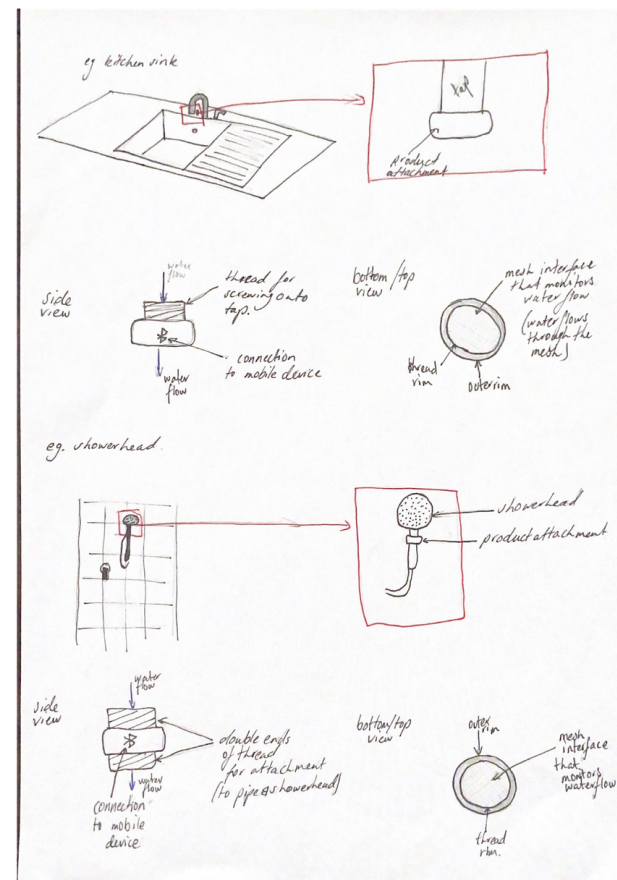 eg kitchen sink
tap
product
attachment
side
view
water
flow
thread for
screwing onto
tap.
connection
to mobile device
water
flow
bottom/top
view
mesh interface
that monitors
water flow
(water flows
through the
mesh)
thread
rim
outer rim
eg. showerhead.
showerhead
product attachment
side
view
water
flow
double ends
of thread
for attachment
(to pipe & showerhead)
water
flow
connection
to mobile
device
bottom/top
view
outer
rim
mesh
interface
that
monitors
waterflow
thread
rim.